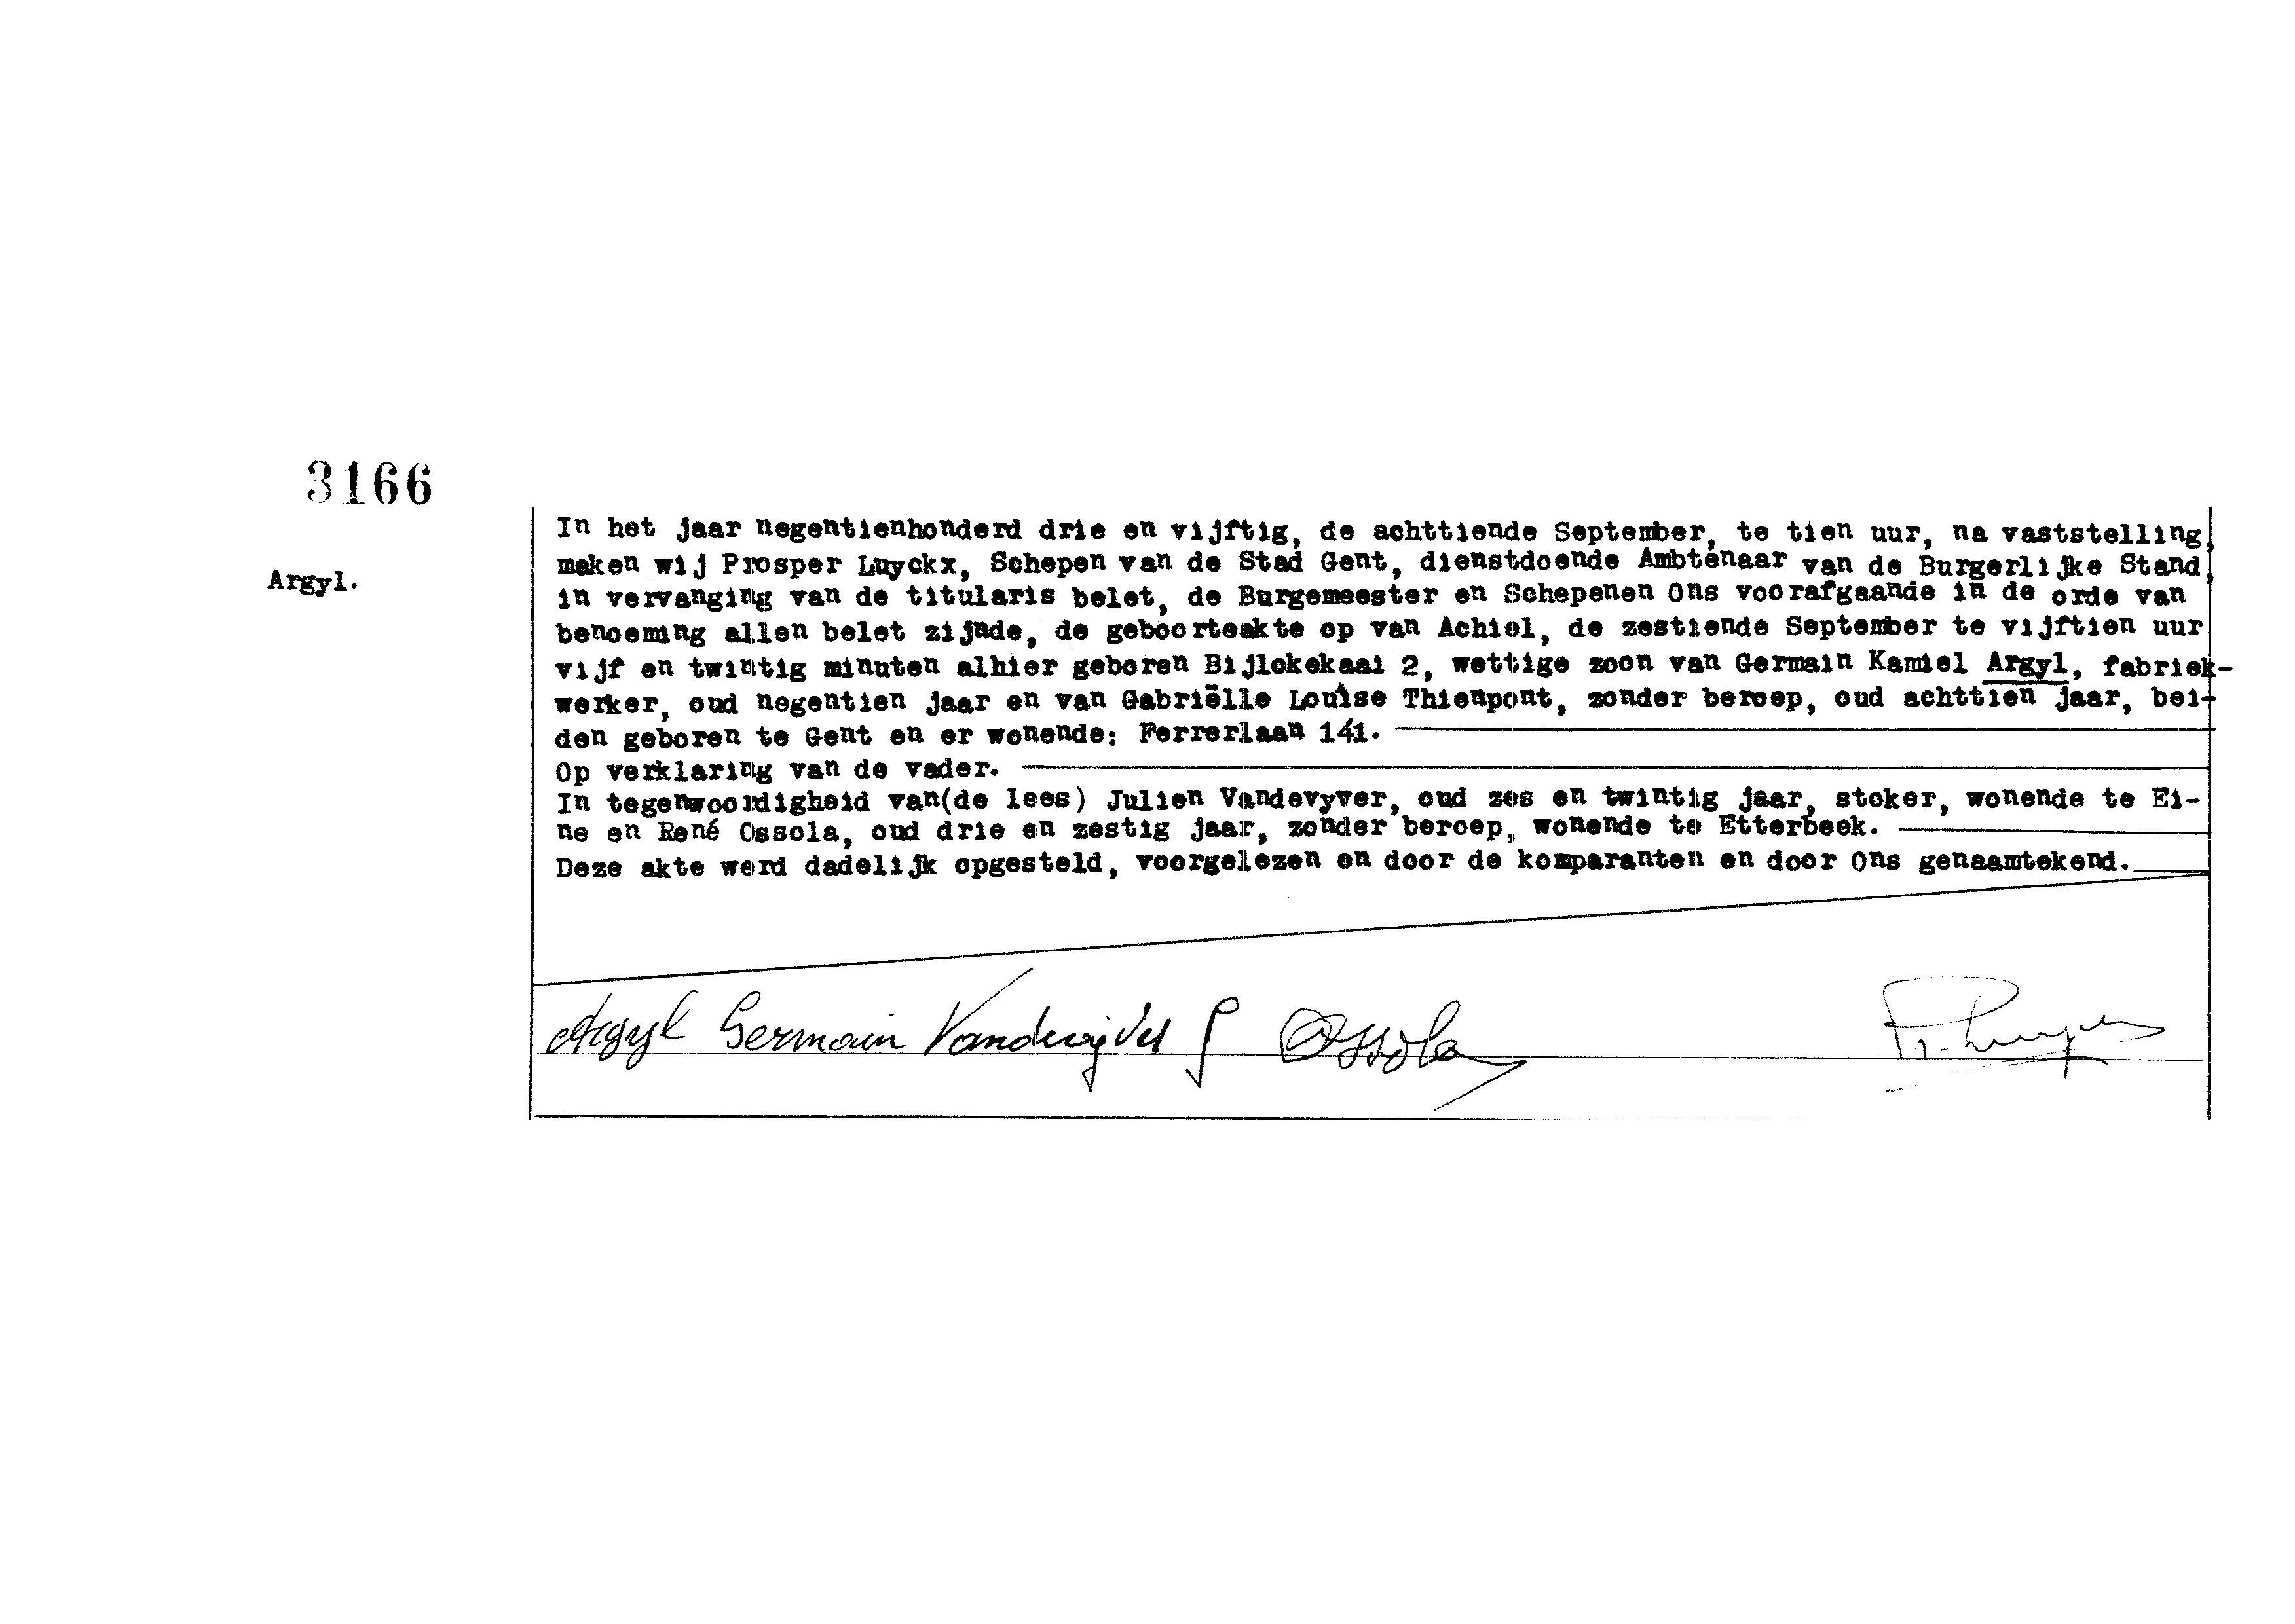 3166
Argyl.
In het jaar negentienhonderd drie en vijftig, de achttiende September, te tien uur, na vaststelling,
maken wij Prosper Luyckx, Schepen van de Stad Gent, dienstdoende Ambtenaar van de Burgerlijke Stand,
in vervanging van de titularis belet, de Burgemeester en Schepenen Ons voorafgaande in de orde van
benoeming allen belet zijnde, de geboorteakte op van Achiel, de zestiende September te vijftien uur
vijf en twintig minuten alhier geboren Bijlokekaai 2, wettige zoon van Germain Kamiel Argyl, fabriek-
werker, oud negentien jaar en van Gabriëlle Louise Thienpont, zonder beroep, oud achttien jaar, bei-
den geboren te Gent en er wonende: Ferrerlaan 141.
Op verklaring van de vader.
In tegenwoordigheid van(de lees) Julien Vandevyver, oud zes en twintig jaar, stoker, wonende te Ei-
ne en René Ossola, oud drie en zestig jaar, zonder beroep, wonende te Etterbeek.
Deze akte werd dadelijk opgesteld, voorgelezen en door de komparanten en door Ons genaamtekend.
Argyl Germain Vandevyver J Ossola